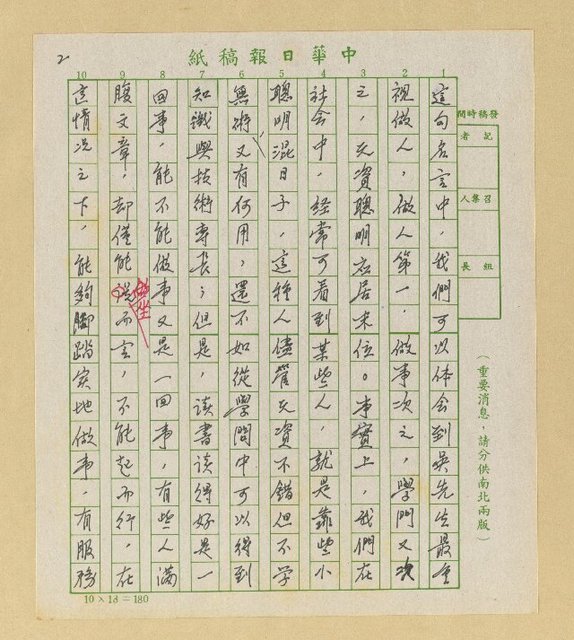 2
中華日報稿紙
發稿時間
記者
召集人
組長
(重要消息,請分供南北兩版)
1 2 3 4 5 6 7 8 9 10
這句名言中,我們可以体会到吳先生最重
視做人,做人第一,做事次之,學門又次
之,天資聰明亦居末位。事實上,我們在
社会中,経常可看到某些人,就是靠些小
聰明混日子,這種人儘管天資不錯但不学
無術,又有何用,還不如從學問中可以得到
知識與技術專長;但是,读書读得好是一
回事,能不能做事又是一回事,有些人滿
腹文章,却僅能坐而言,不能起而行,在
這情況之下,能夠腳踏实地做事,有服務
10×18=180